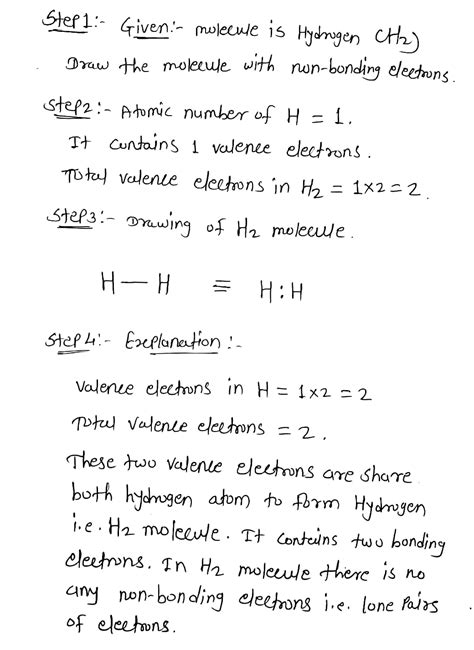 Step1:- Given:- molecule is Hydrogen (H2)
Draw the molecule with non-bonding electrons.
Step2:- Atomic number of H = 1.
It contains 1 valence electrons.
Total valence electrons in H2 = 1×2 = 2.
Step3:- Drawing of H2 molecule.
H—H ≡ H:H
Step4:- Explanation :-
Valence electrons in H = 1×2 = 2
Total Valence electrons = 2.
These two valence electrons are share
both hydrogen atom to form Hydrogen
i.e. H2 molecule. It contains two bonding
electrons. In H2 molecule there is no
any non-bonding electrons i.e. lone pairs
of electrons.